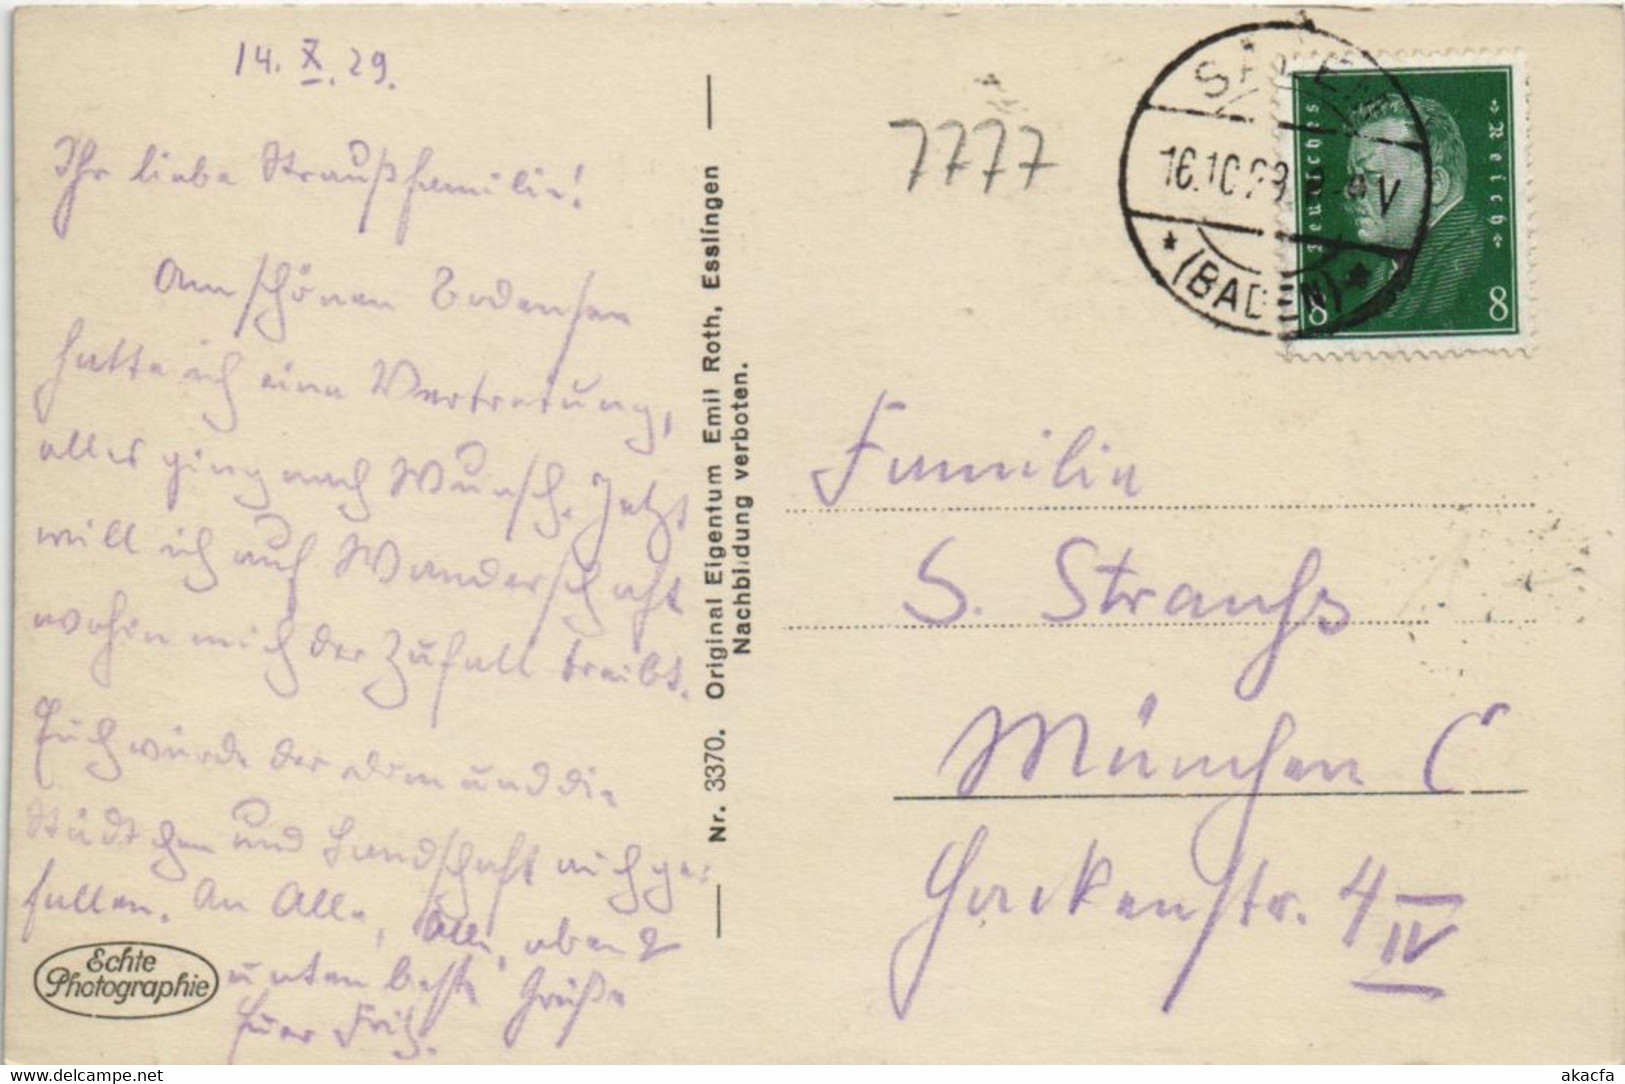 14. X. 29.
Ihr liebe Straußfamilie!
Am schönen Bodensee
hatte ich eine Vertretung,
alles ging nach Wunsch. Jetzt
will ich auf Wanderschaft
wohin mich der Zufall treibt.
Euch würde der und die
Städtchen und Landschaft auch ge-
fallen. An Alle, Alle, oben &
unten beste Grüße
Euer Fritz.
Echte
Photographie
Nr. 3370. Original Eigentum Emil Roth, Esslingen
Nachbildung verboten.
7777
16.10.29. V
(BADEN)
Deutsches Reich
8 8
Familie
S. Strauss
München C
Hackenstr. 4 IV
delcampe.net
akacfa